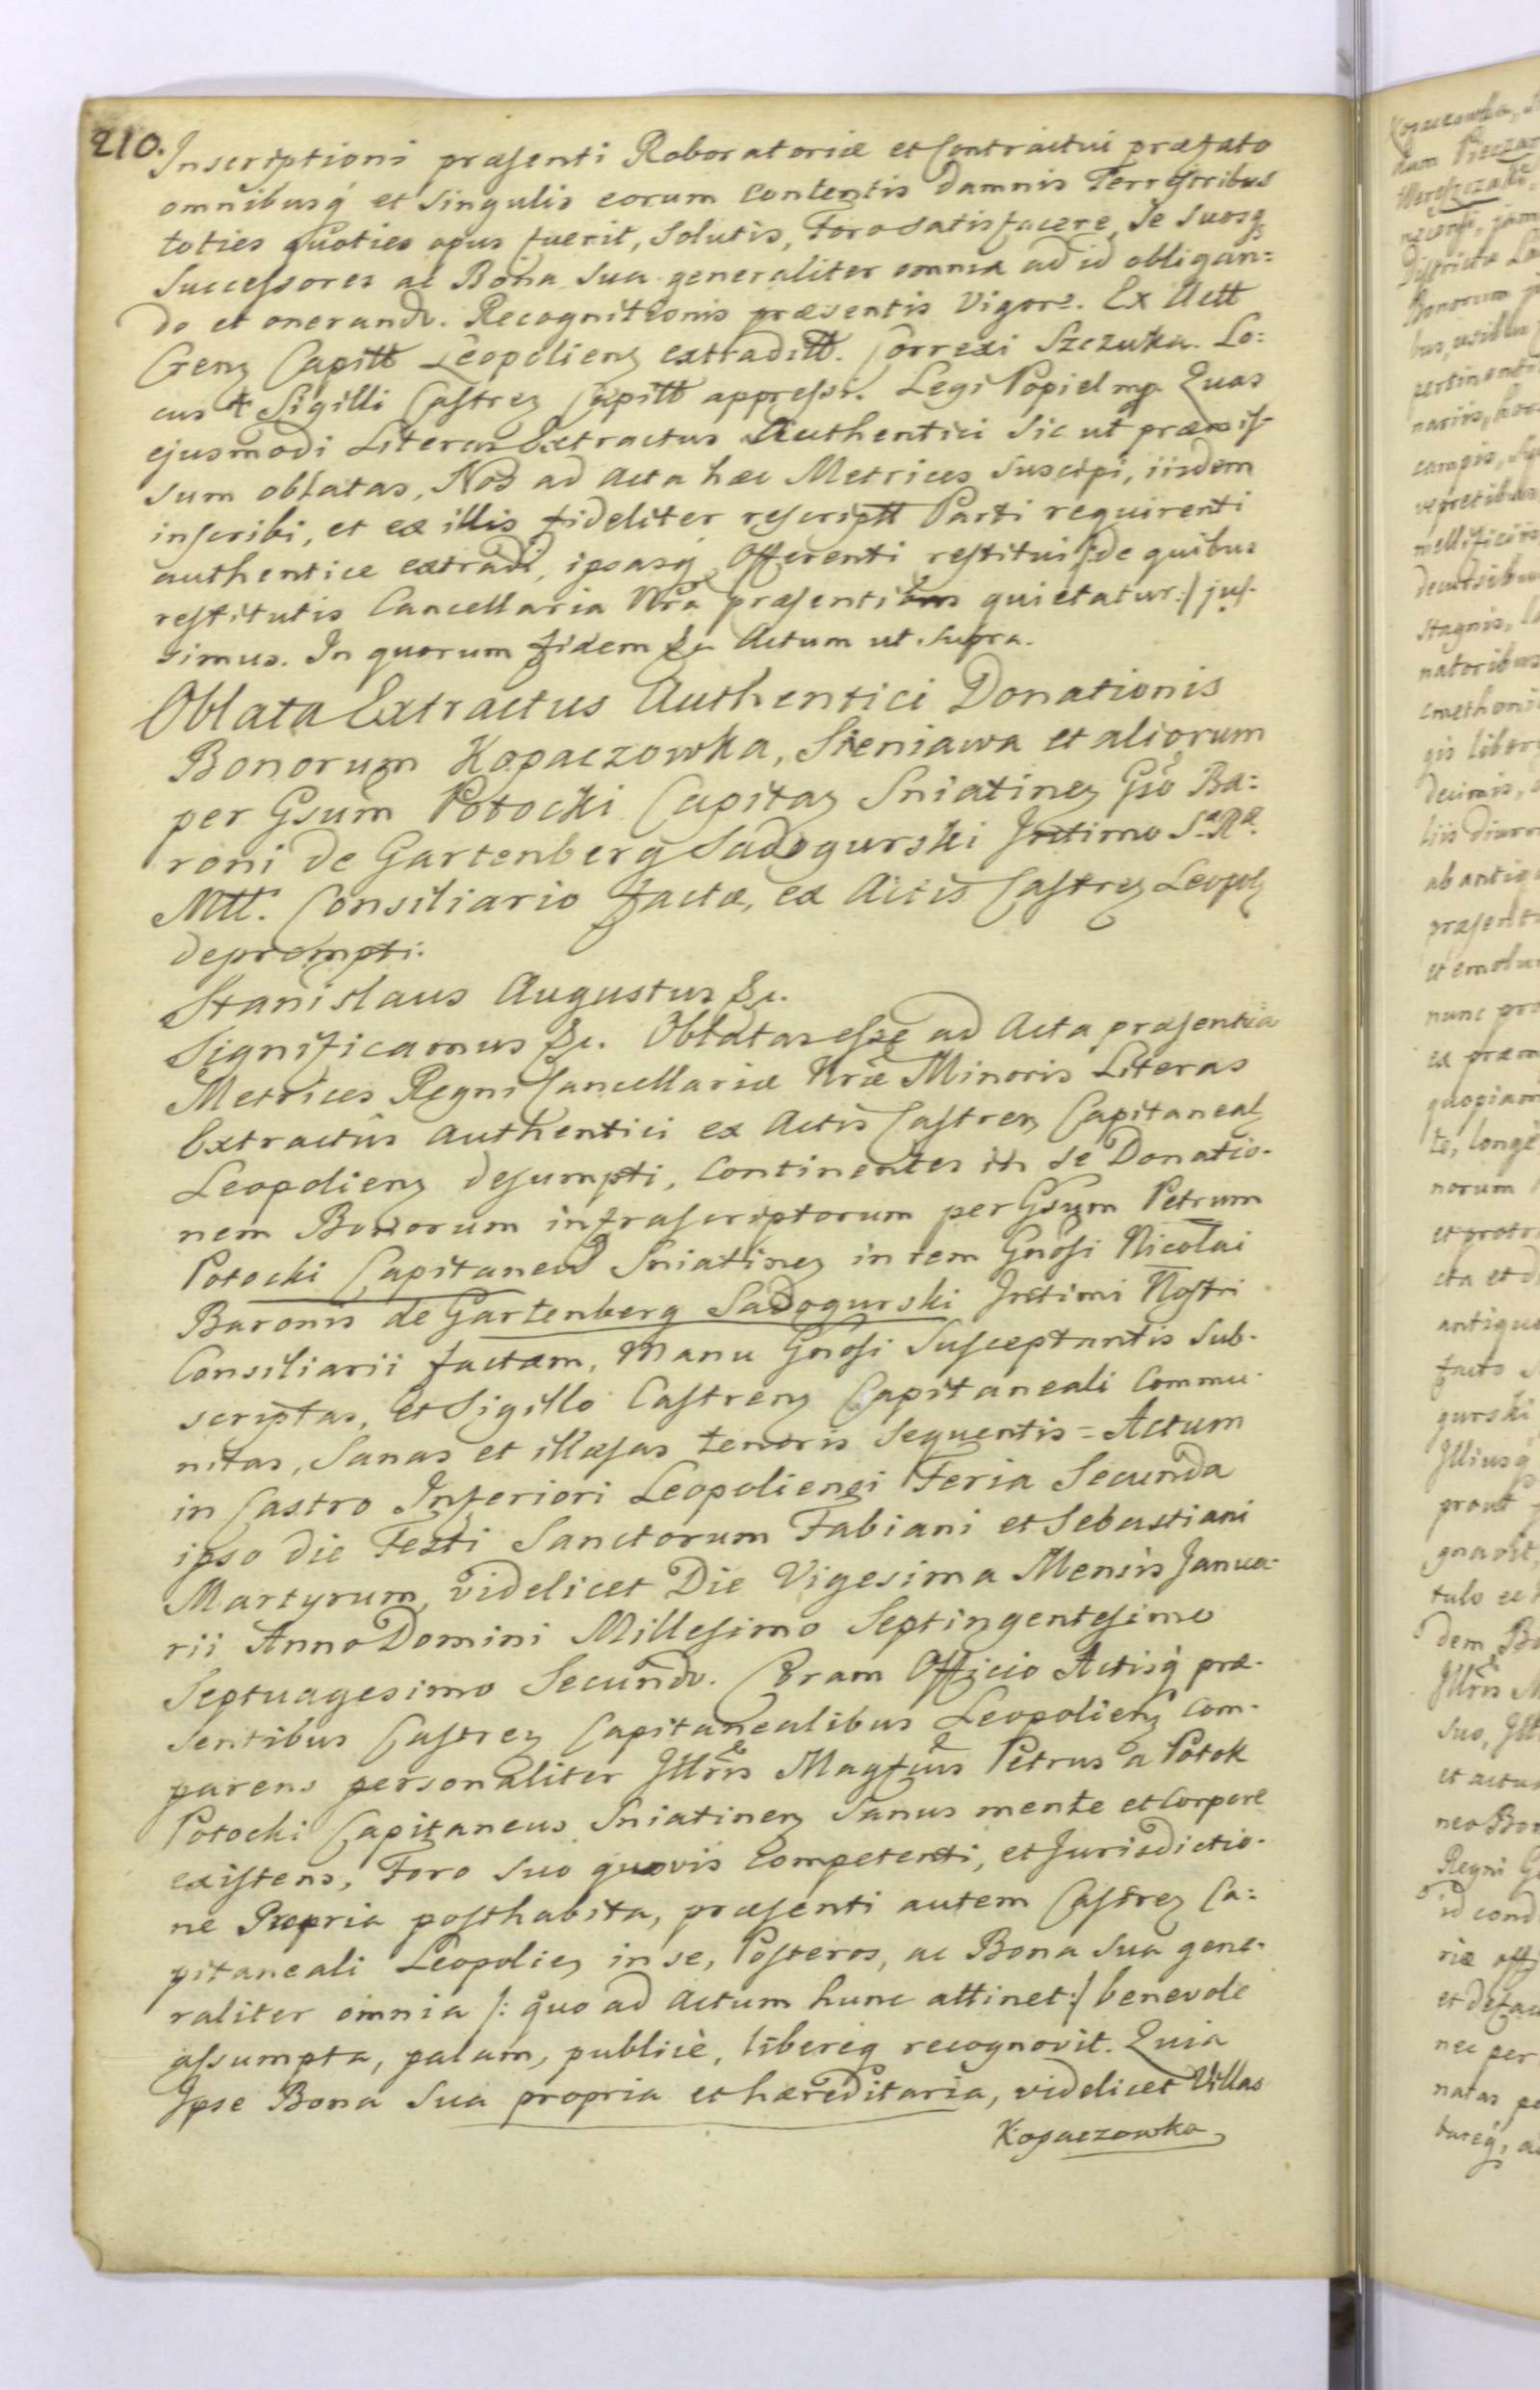 210.
Inscriptioni præsenti Roboratoriæ et Contractui præfato
omnibusq́ et Singulis eorum Contentis Damnis Terrestribus
toties quoties opus fuerit, Solutis, Foro Satisfacere, Se Suosq́
Successores ac Bona Sua generaliter omnia ad id obligan=
do et onerando. Recognitionis præsentis Vigore. Ex Actt
Capitt Leopolienz extraditt. Correxi Szczuka. Lo:
cus Sigilli Castrez Capitt appressi. Legi Popiel mp. Quas
ejusmodi Literas Extractus Authentici Sic ut præmis-
sum oblatas, Nos ad Acta hæc Metrices Suscipi, iisdem
inscribi, et ex illis fideliter rescriptt Parti requirenti
authentice extradi, ipsasq́ Offerenti restitui /:de quibus
restitutis Cancellaria Nra præsentibus quietatur:/ jus-
simus. In quorum fidem &c Actum ut Supra.
Oblata Extractus Authentici Donationis
Bonorum Kopaczowka, Sieniawa et aliorum
per Gsum Potocki Capitaz Sniatinez Gso Ba=
roni de Gartenberg Sadogurski Intimo S.æ R.æ
Mtt. Consiliario factæ, ex Actis Castrez Leopolz
deprompti.
Stanislaus Augustus &c.
Significamus &c. Oblatas esse ad Acta præsentia
Metrices Regni Cancellariæ Nræ Minoris Literas
Extractûs Authentici ex Actis Castrenz Capitanealz
Leopolienz desumpti, Continentes in se Donatio-
nem Bonorum infrascriptorum per Gsum Petrum
Potocki Capitaneum Sniatinez in rem Gnosi Nicolai
Baronis de Gartenberg Sadogurski Intimi Nostri
Consiliarii factam, Manu Gnosi Susceptantis Sub-
scriptas, et Sigillo Castrenz Capitaneali Commu-
nitas, Sanas et illæsas tenoris Sequentis = Actum
in Castro Inferiori Leopoliensi Feria Secunda
ipso die Festi Sanctorum Fabiani et Sebastiani
Martyrum, videlicet Die Vigesima Mensis Janua-
rii Anno Domini Millesimo Septingentesimo
Septuagesimo Secundo. Coram Officio Actisq́ præ-
sentibus Castrez Capitanealibus Leopolienz com-
parens personaliter Illris Magfcus Petrus a Potok
Potocki Capitaneus Sniatinenz Sanus mente et Corpore
existens, Foro Suo quovis Competenti, et Jurisdictio-
ne Propria posthabita, præsenti autem Castrez Ca=
pitaneali Leopoliez in se, Posteros, ac Bona Sua gene-
raliter omnia /: quo ad Actum hunc attinet:/ benevole
assumpta, palam, publicè, libereq recognovit. Quia
Ipse Bona Sua propria et hæreditaria, videlicet Villas
Kopaczowka